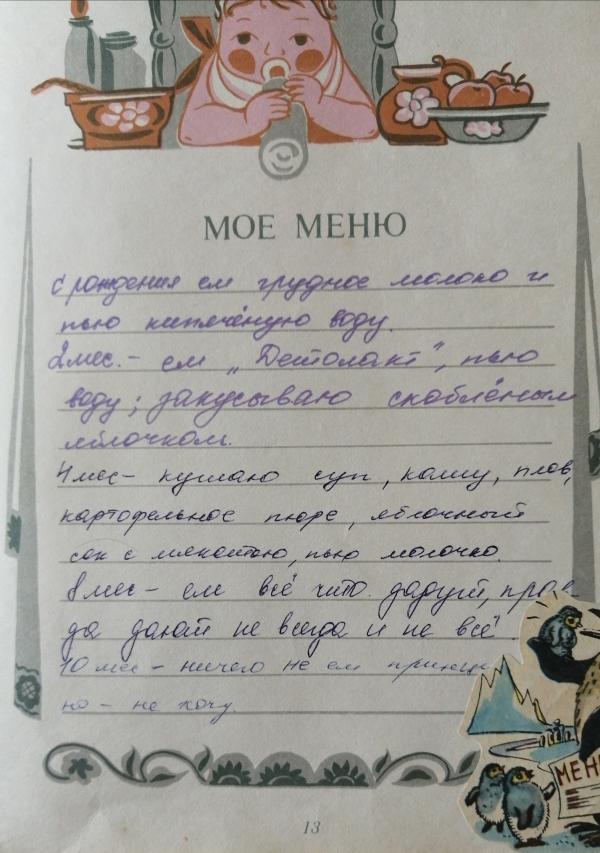 МОЕ МЕНЮ
С рождения ем грудное молоко и
пью кипячёную воду.
2 мес. - ем „Детолакт", пью
воду; закусываю скоблёным
яблочком.
4 мес - кушаю суп, кашу, плов,
картофельное пюре, яблочный
сок с мякотью, пью молочко.
8 мес - ем всё что дадут, прав
да дают не всегда и не всё.
10 мес - ничего не ем
но - не хочу.
МЕН
13